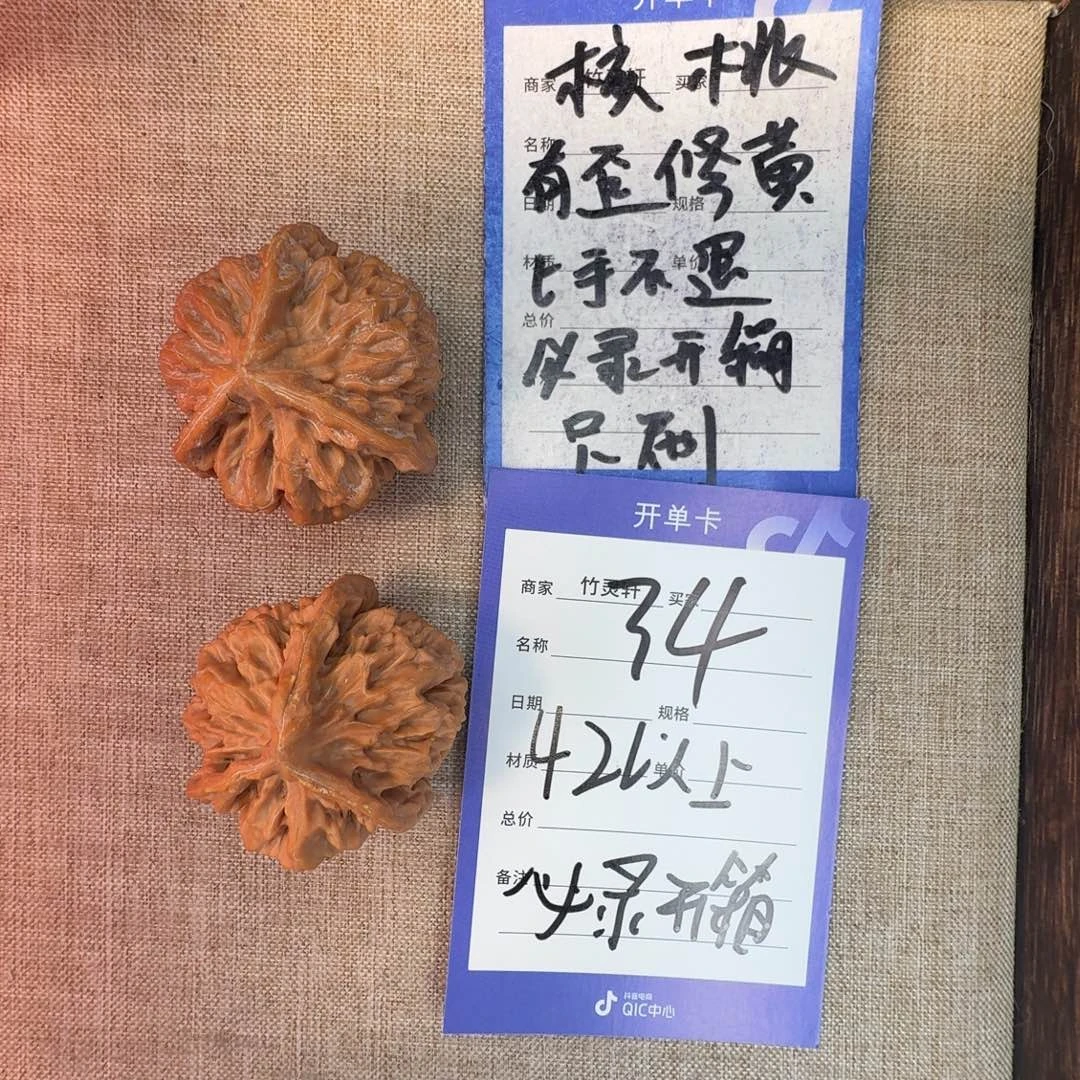 开单卡
核桃
商家 竹灵轩 买家
名称
有歪修黄
日期 规格
材质 单价
上手不退
总价
必录开箱
只刷
开单卡
商家 竹灵轩 买家
34
名称
日期 规格
材质 单价
42以上
总价
备注
必录开箱
抖音电商
QIC中心